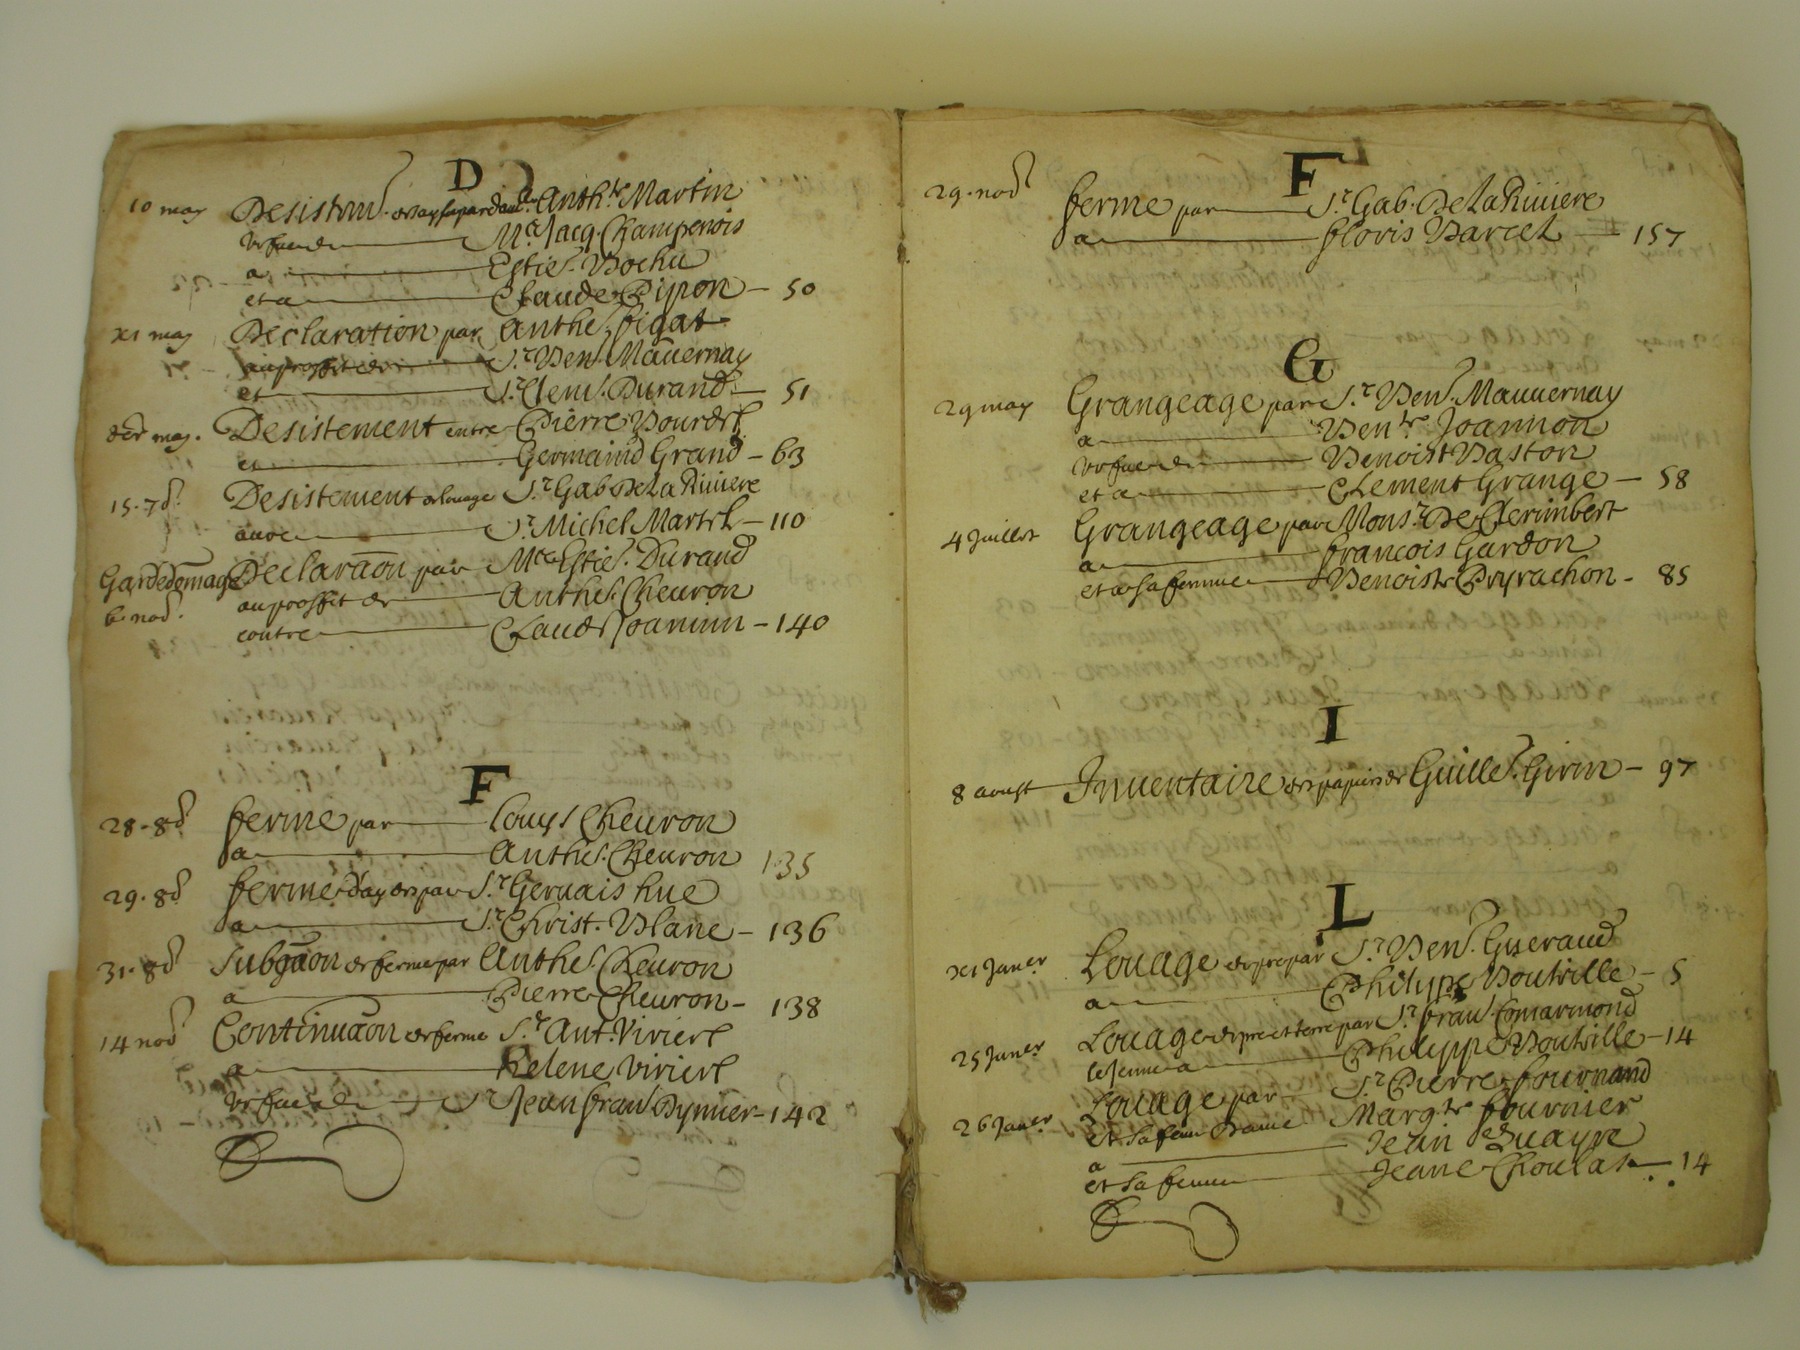 D
10 may Desistem.t par Anth.re Martin
Mre Jacq. Champenois
a Estie. Bochu
et a Claude Pipon - 50
xi may Declaration par Anthe. figat
au proffit de S.r Ben. Mauvernay
et S.r Clem. Durand - 51
der may. Desistement entre Pierre Bourdel
et Germaind Grand - 63
15. 7d. Desistement de louage S.r Gab De La Riviere
avec S.r Michel Martel - 110
Gardedomage Declaraon par Mre Estie. Durand
6e nod. au proffit de Anthe. Chevron
contre Claude Joannin - 140
F
28. 8d ferme par Louys Chevron
a Anthe. Chevron 135
29. 8d ferme par S.r Gervais hue
a S.r Christ. Blanc - 136
31. 8d Subgaon de ferme par Anthe. Chevron
a Pierre Chevron - 138
14 nod Continuaon de ferme S.r Ant. Viriert
a helene Viriert
vefue de S.r Jean fran Dymier - 142
F
29. nod ferme par S.r Gab. De La Riviere
a floris Barcet - 157
G
29 may Grangeage par S.r Ben. Mauvernay
a Ben.re Joannon
vefue de Benoist Baston
et a Clement Grange - 58
4 Juillet Grangeage par Mons.r De Clerimbert
a francois Gardon
et a sa femme Benoiste Peyrachon - 85
I
8 aoust Inventaire des papiers de Guille. Girin - 97
L
xi Janer Louage de pre par S.r Ben. Gueraud
a Philippe Boutville - 5
25 Janer Louage de pre et terre par S.r fran Comarmond
le Jeune a Philippe Boutville - 14
26 Janer Louage par S.r Pierre fournand
et sa feme Dame Marg.te fournier
a Jean Duayre
et sa femme Jeane Choulat - 14